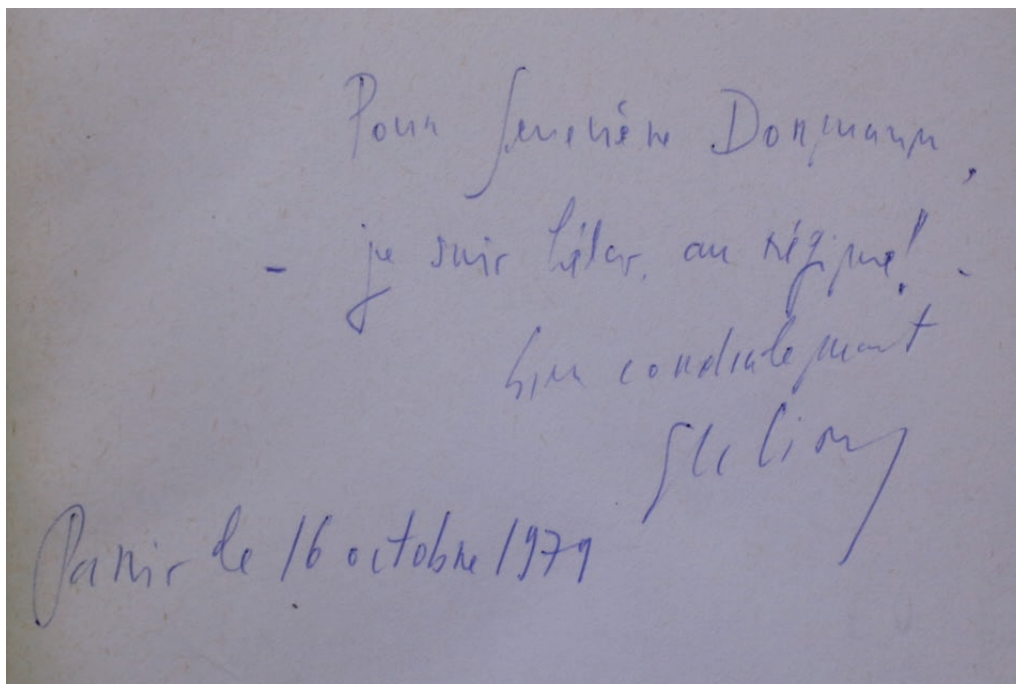 Pour Geneviève Dormann,
- je suis hélas, au régime! -
bien cordialement
Paris le 16 octobre 1979